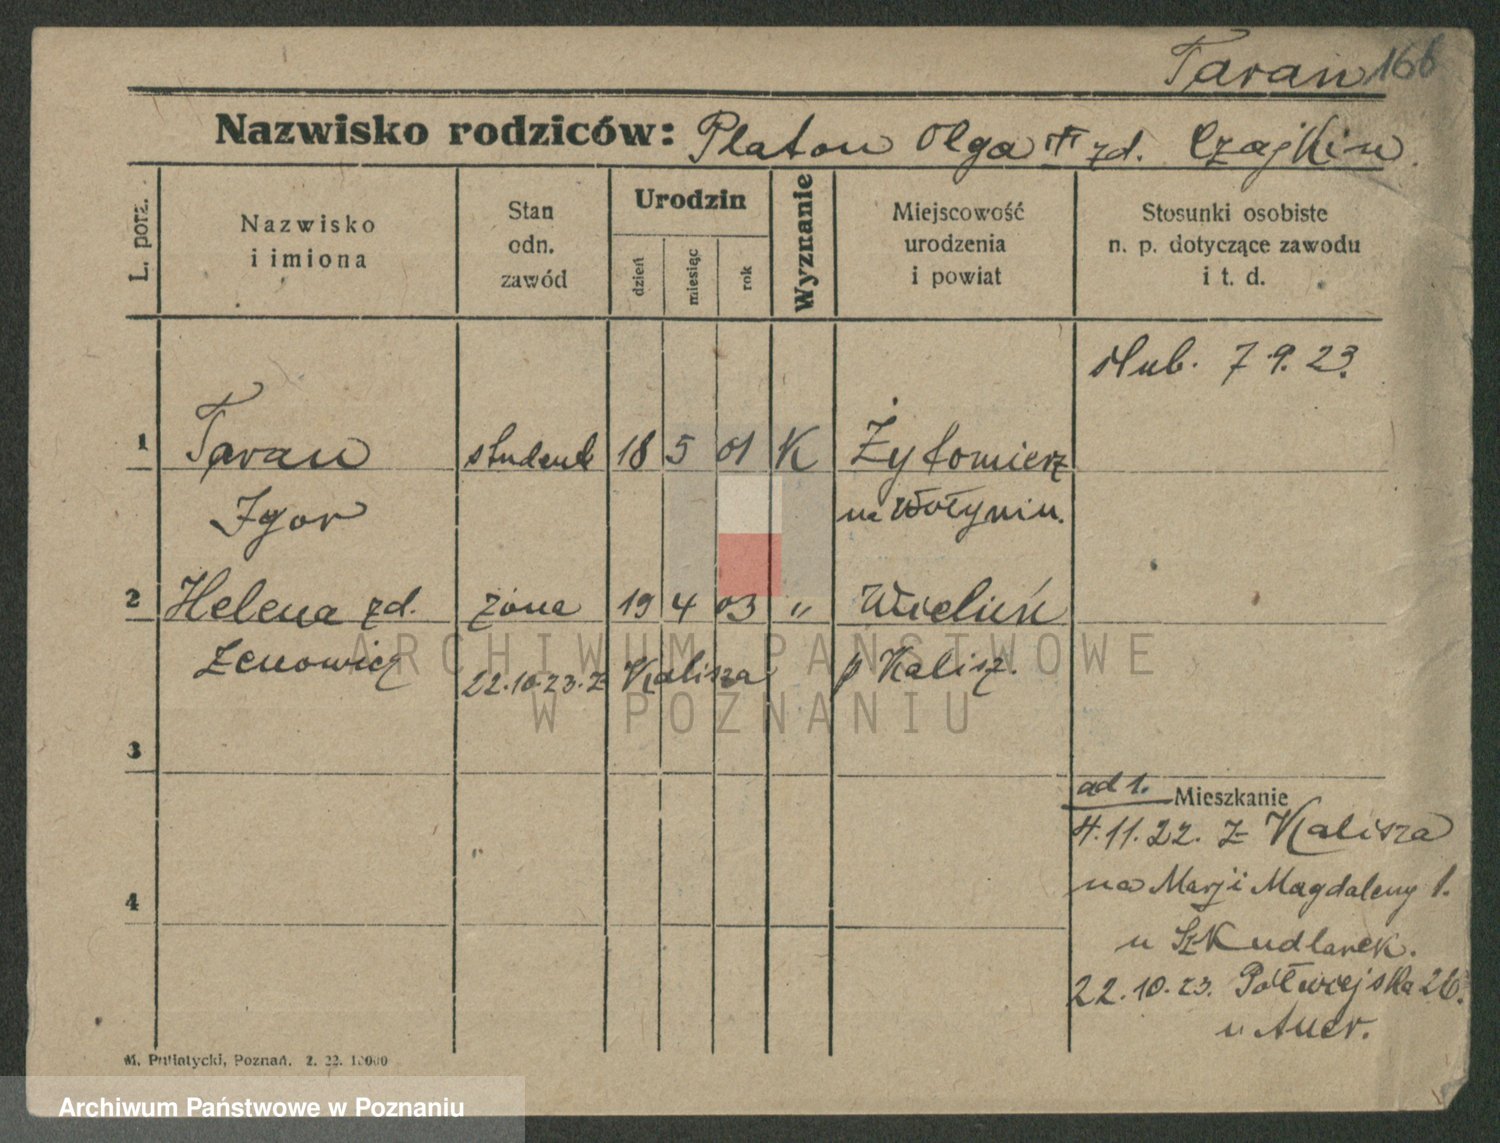 Taran 166
Nazwisko rodziców: Platon Olga zd. Czajkin
L. porz.
Nazwisko
i imiona
Stan
odn.
zawód
Urodzin
dzień
miesiąc
rok
Wyznanie
Miejscowość
urodzenia
i powiat
Stosunki osobiste
n. p. dotyczące zawodu
i t. d.
ślub. 7.9.23.
1 Taran student 18 5 01 K Żytomierz
Igor na Wołyniu.
2 Helena zd. żona 19 4 03 " Wieluń
Zenowicz 22.10.23. z Kalisza p Kalisz.
3
ad 1. Mieszkanie
4.11.22. z Kalisza
na Marji Magdaleny 1.
4
u Szkudlarek.
22.10.23. Półwiejska 26.
u Auer.
M. Putiatycki, Poznań. 2. 22. 10000
ARCHIWUM PAŃSTWOWE
W POZNANIU
Archiwum Państwowe w Poznaniu